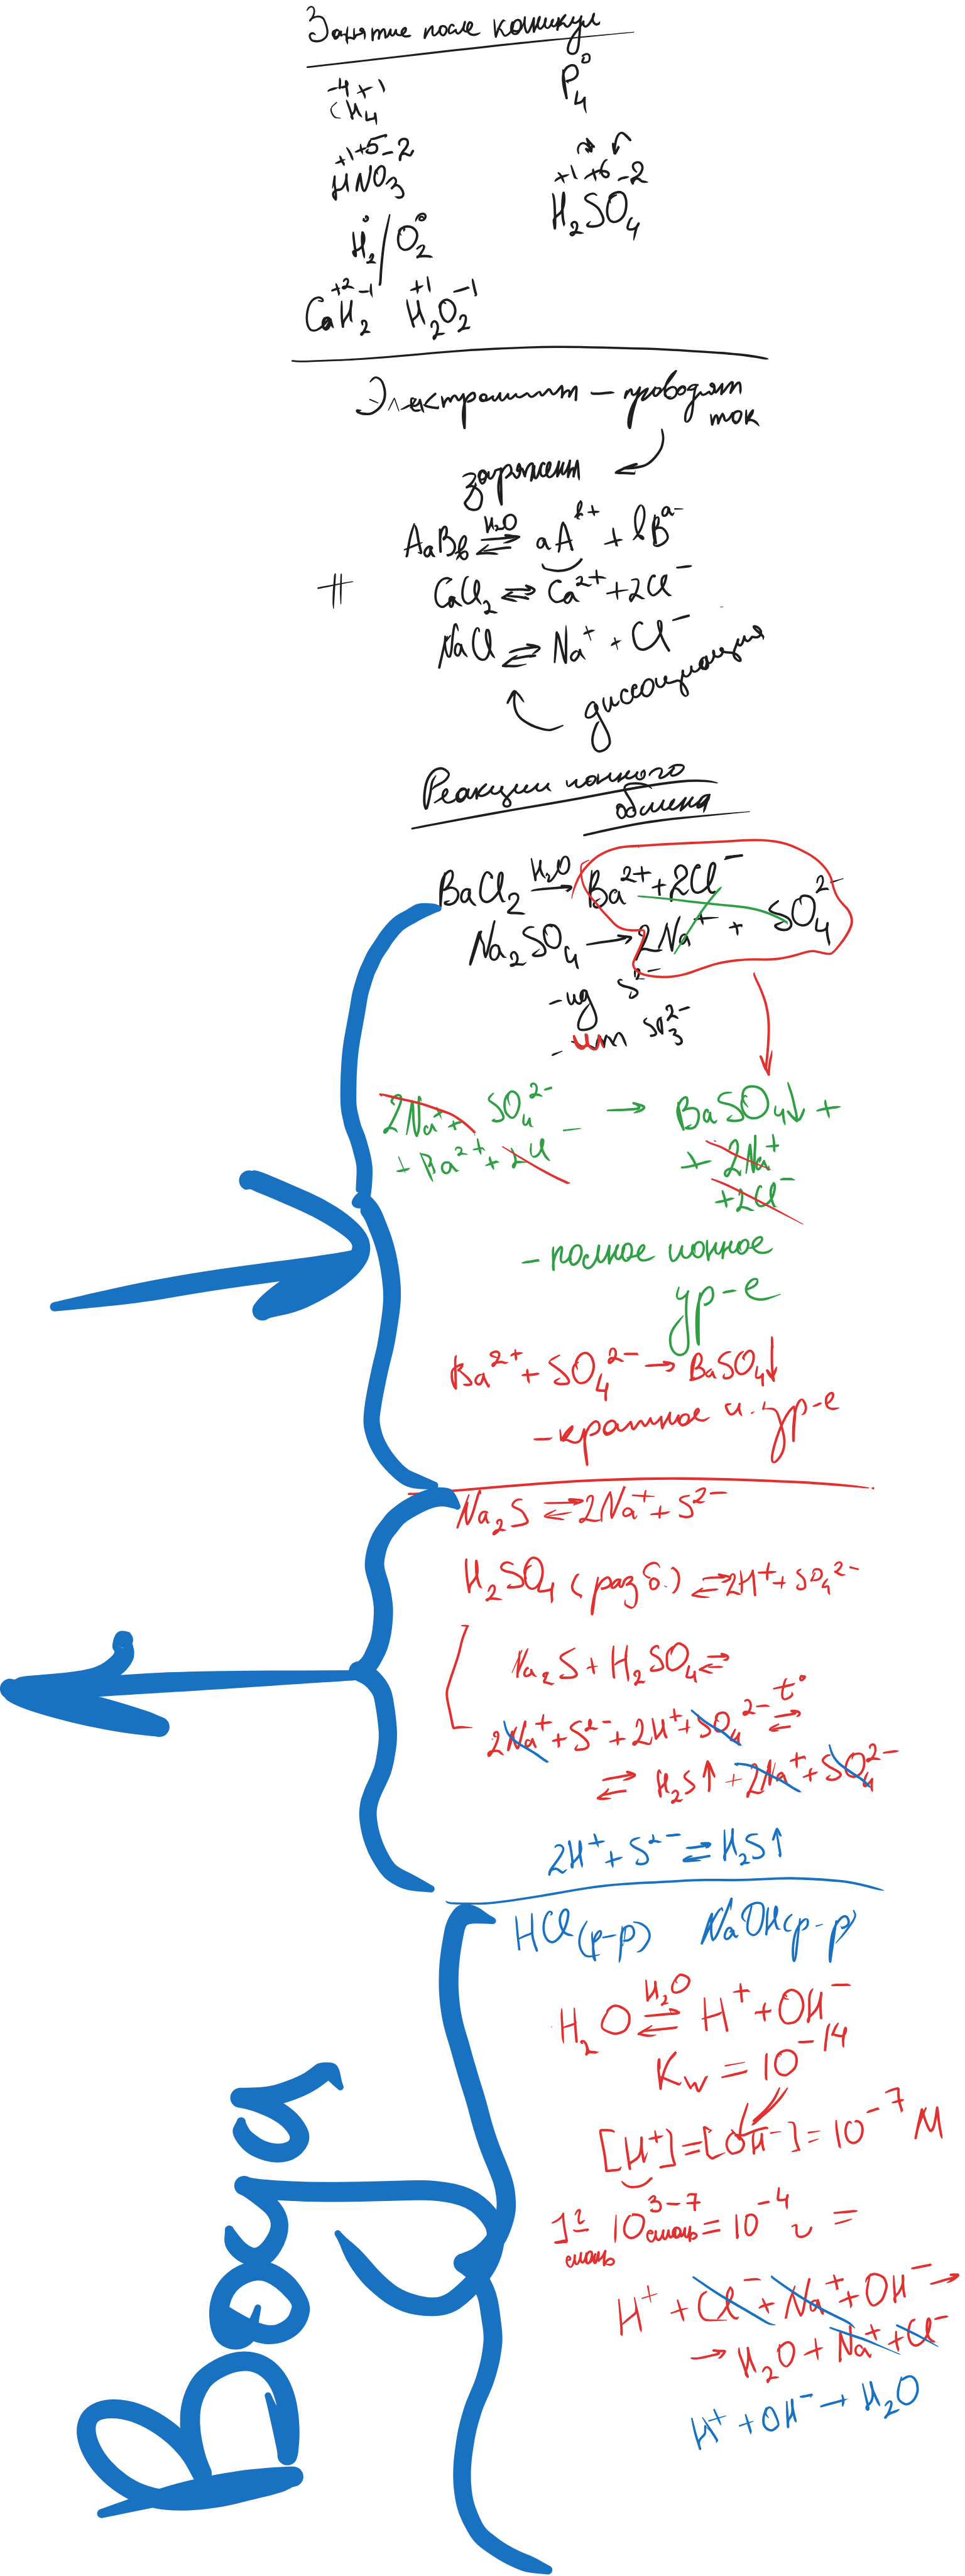 Занятие после каникул
-4 +1
CH₄
P₄⁰
+1 +5 -2
HNO₃
+1 +6 -2
H₂SO₄
H₂⁰ / O₂⁰
+2 -1
CaH₂
+1 -1
H₂O₂
Электролит – проводят
ток
заряжен
AₐBb ⇄ (H₂O) aAᵇ⁺ + bBᵃ⁻
CaCl₂ ⇄ Ca²⁺ + 2Cl⁻
NaCl ⇄ Na⁺ + Cl⁻
диссоциация
Реакции ионного
обмена
BaCl₂ →(H₂O) Ba²⁺ + 2Cl⁻
Na₂SO₄ → 2Na⁺ + SO₄²⁻
- ид S²⁻
- ит SO₃²⁻
2Na⁺ + SO₄²⁻ → BaSO₄↓ +
+ Ba²⁺ + 2Cl⁻
+ 2Na⁺
+ 2Cl⁻
- полное ионное
ур-е
Ba²⁺ + SO₄²⁻ → BaSO₄↓
- краткое и. ур-е
Na₂S ⇄ 2Na⁺ + S²⁻
H₂SO₄ (разб.) ⇄ 2H⁺ + SO₄²⁻
Na₂S + H₂SO₄ ⇄
2Na⁺ + S²⁻ + 2H⁺ + SO₄²⁻ ⇄ (t°)
⇄ H₂S↑ + 2Na⁺ + SO₄²⁻
2H⁺ + S²⁻ ⇄ H₂S↑
HCl (р-р) NaOH (р-р)
H₂O ⇄ (H₂O) H⁺ + OH⁻
Kw = 10⁻¹⁴
[H⁺] = [OH⁻] = 10⁻⁷ M
10³⁻⁷ = 10⁻⁴ г =
H⁺ + Cl⁻ + Na⁺ + OH⁻ →
→ H₂O + Na⁺ + Cl⁻
H⁺ + OH⁻ → H₂O
Вода